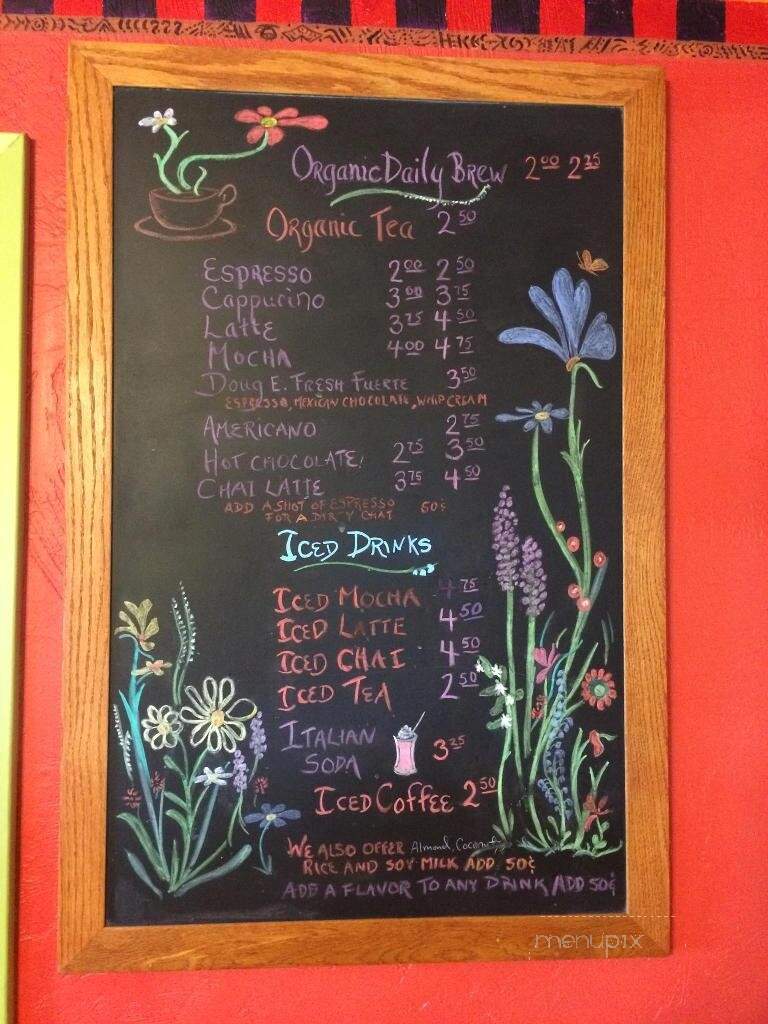 Organic Daily Brew 2.00 2.25
Organic Tea 2.50
Espresso 2.00 2.50
Cappucino 3.00 3.75
Latte 3.75 4.50
Mocha 4.00 4.75
Doug E. Fresh Fuerte 3.50
Espresso, Mexican Chocolate, Whip Cream
Americano 2.75
Hot Chocolate 2.75 3.50
Chai Latte 3.75 4.50
Add a shot of espresso 50¢
for a dirty chai
Iced Drinks
Iced Mocha 4.75
Iced Latte 4.50
Iced Chai 4.50
Iced Tea 2.50
Italian
Soda 3.25
Iced Coffee 2.50
We also offer Almond, Coconut,
Rice and Soy Milk Add 50¢
Add a flavor to any drink Add 50¢
menupix